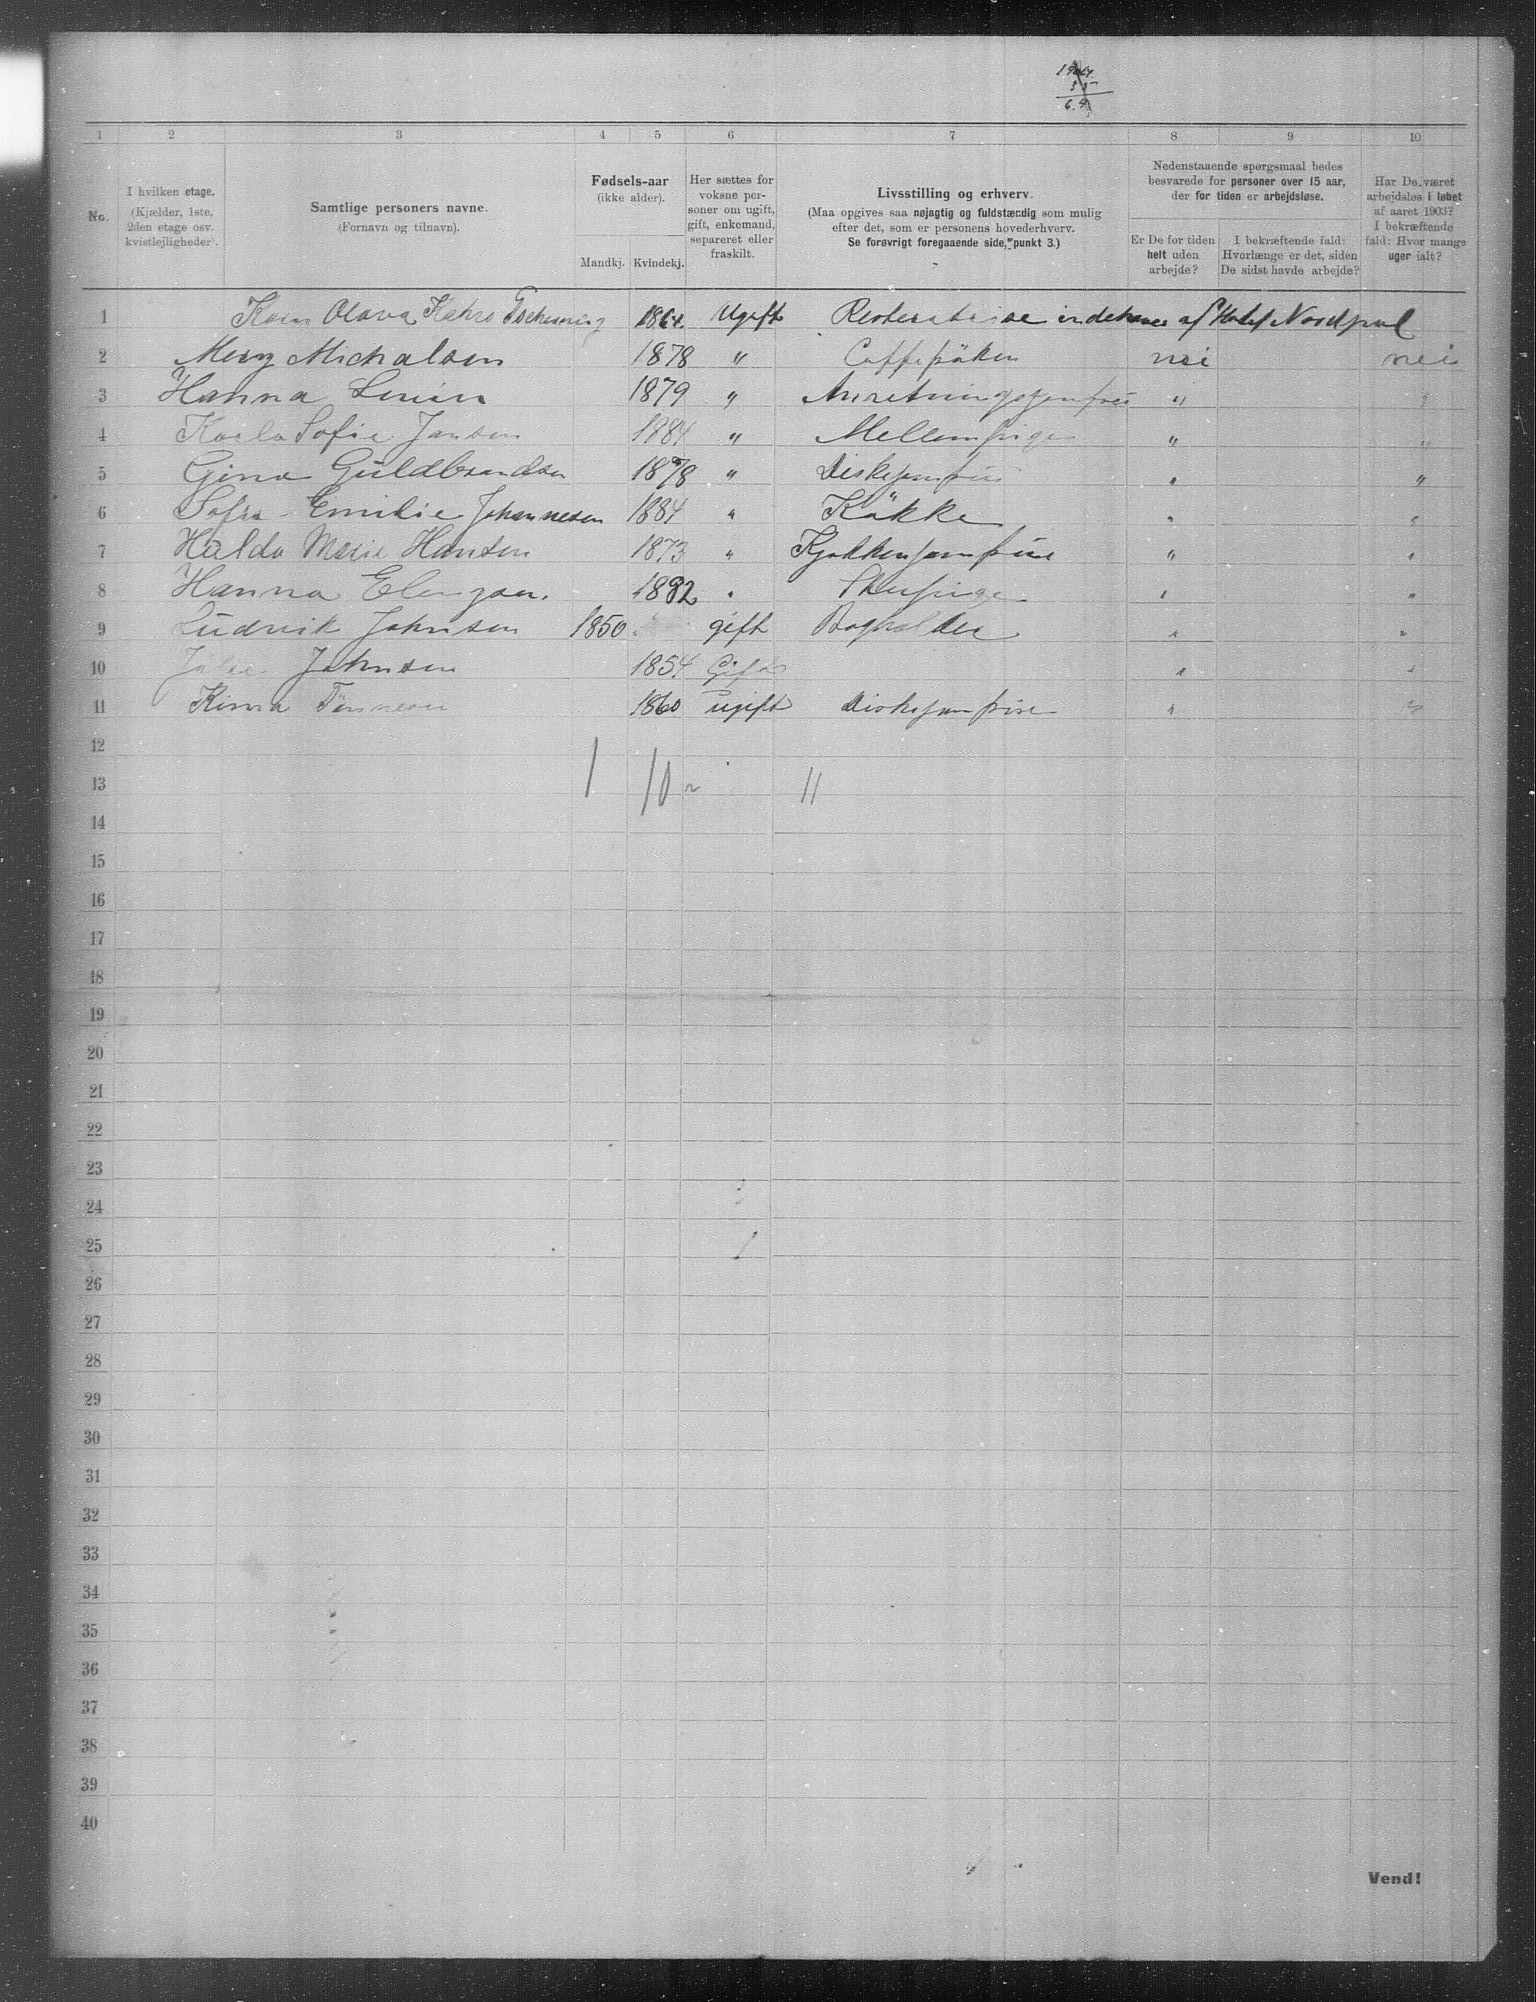 1 2 3 4 5 6 7 8 9 10
No.
I hvilken etage.
(Kjælder, 1ste,
2den etage osv.
kvistlejligheder).
Samtlige personers navne.
(Fornavn og tilnavn).
Fødsels-aar
(ikke alder).
Mandkj. Kvindekj.
Her sættes for
voksne per-
soner om ugift,
gift, enkemand,
separeret eller
fraskilt.
Livsstilling og erhverv.
(Maa opgives saa nøjagtig og fuldstændig som mulig
efter det, som er personens hovederhverv.
Se forøvrigt foregaaende side, punkt 3.)
Nedenstaaende spørgsmaal bedes
besvarede for personer over 15 aar,
der for tiden er arbejdsløse.
Er De for tiden
helt uden
arbejde?
I bekræftende fald:
Hvorlænge er det, siden
De sidst havde arbejde?
Har De været
arbejdsløs i løbet
af aaret 1903?
I bekræftende
fald: Hvor mange
uger ialt?
1 Olava 1864 Ugift indehaver af Hotel Nordpol
2 Mery Michalsen 1878 " nei nei
3 Hanna 1879 " "
4 Karla Sofie Jansen 1884 " Mellempige " "
5 Gina Guldbrandsen 1878 " Diskjomfru " "
6 Sofie Emilie Johannesen 1884 " Kokke " "
7 Hulda Marie Hansen 1873 " Kjøkkenjomfrue " "
8 Hanna 1882 " " "
9 Ludvik Johnsen 1850 gift Bogholder " "
10 Johnsen 1854 Gift " "
11 Tønnesen 1860 ugift Diskjomfrue " "
12
13 1 10 11
14
15
16
17
18
19
20
21
22
23
24
25
26
27
28
29
30
31
32
33
34
35
36
37
38
39
40
Vend!